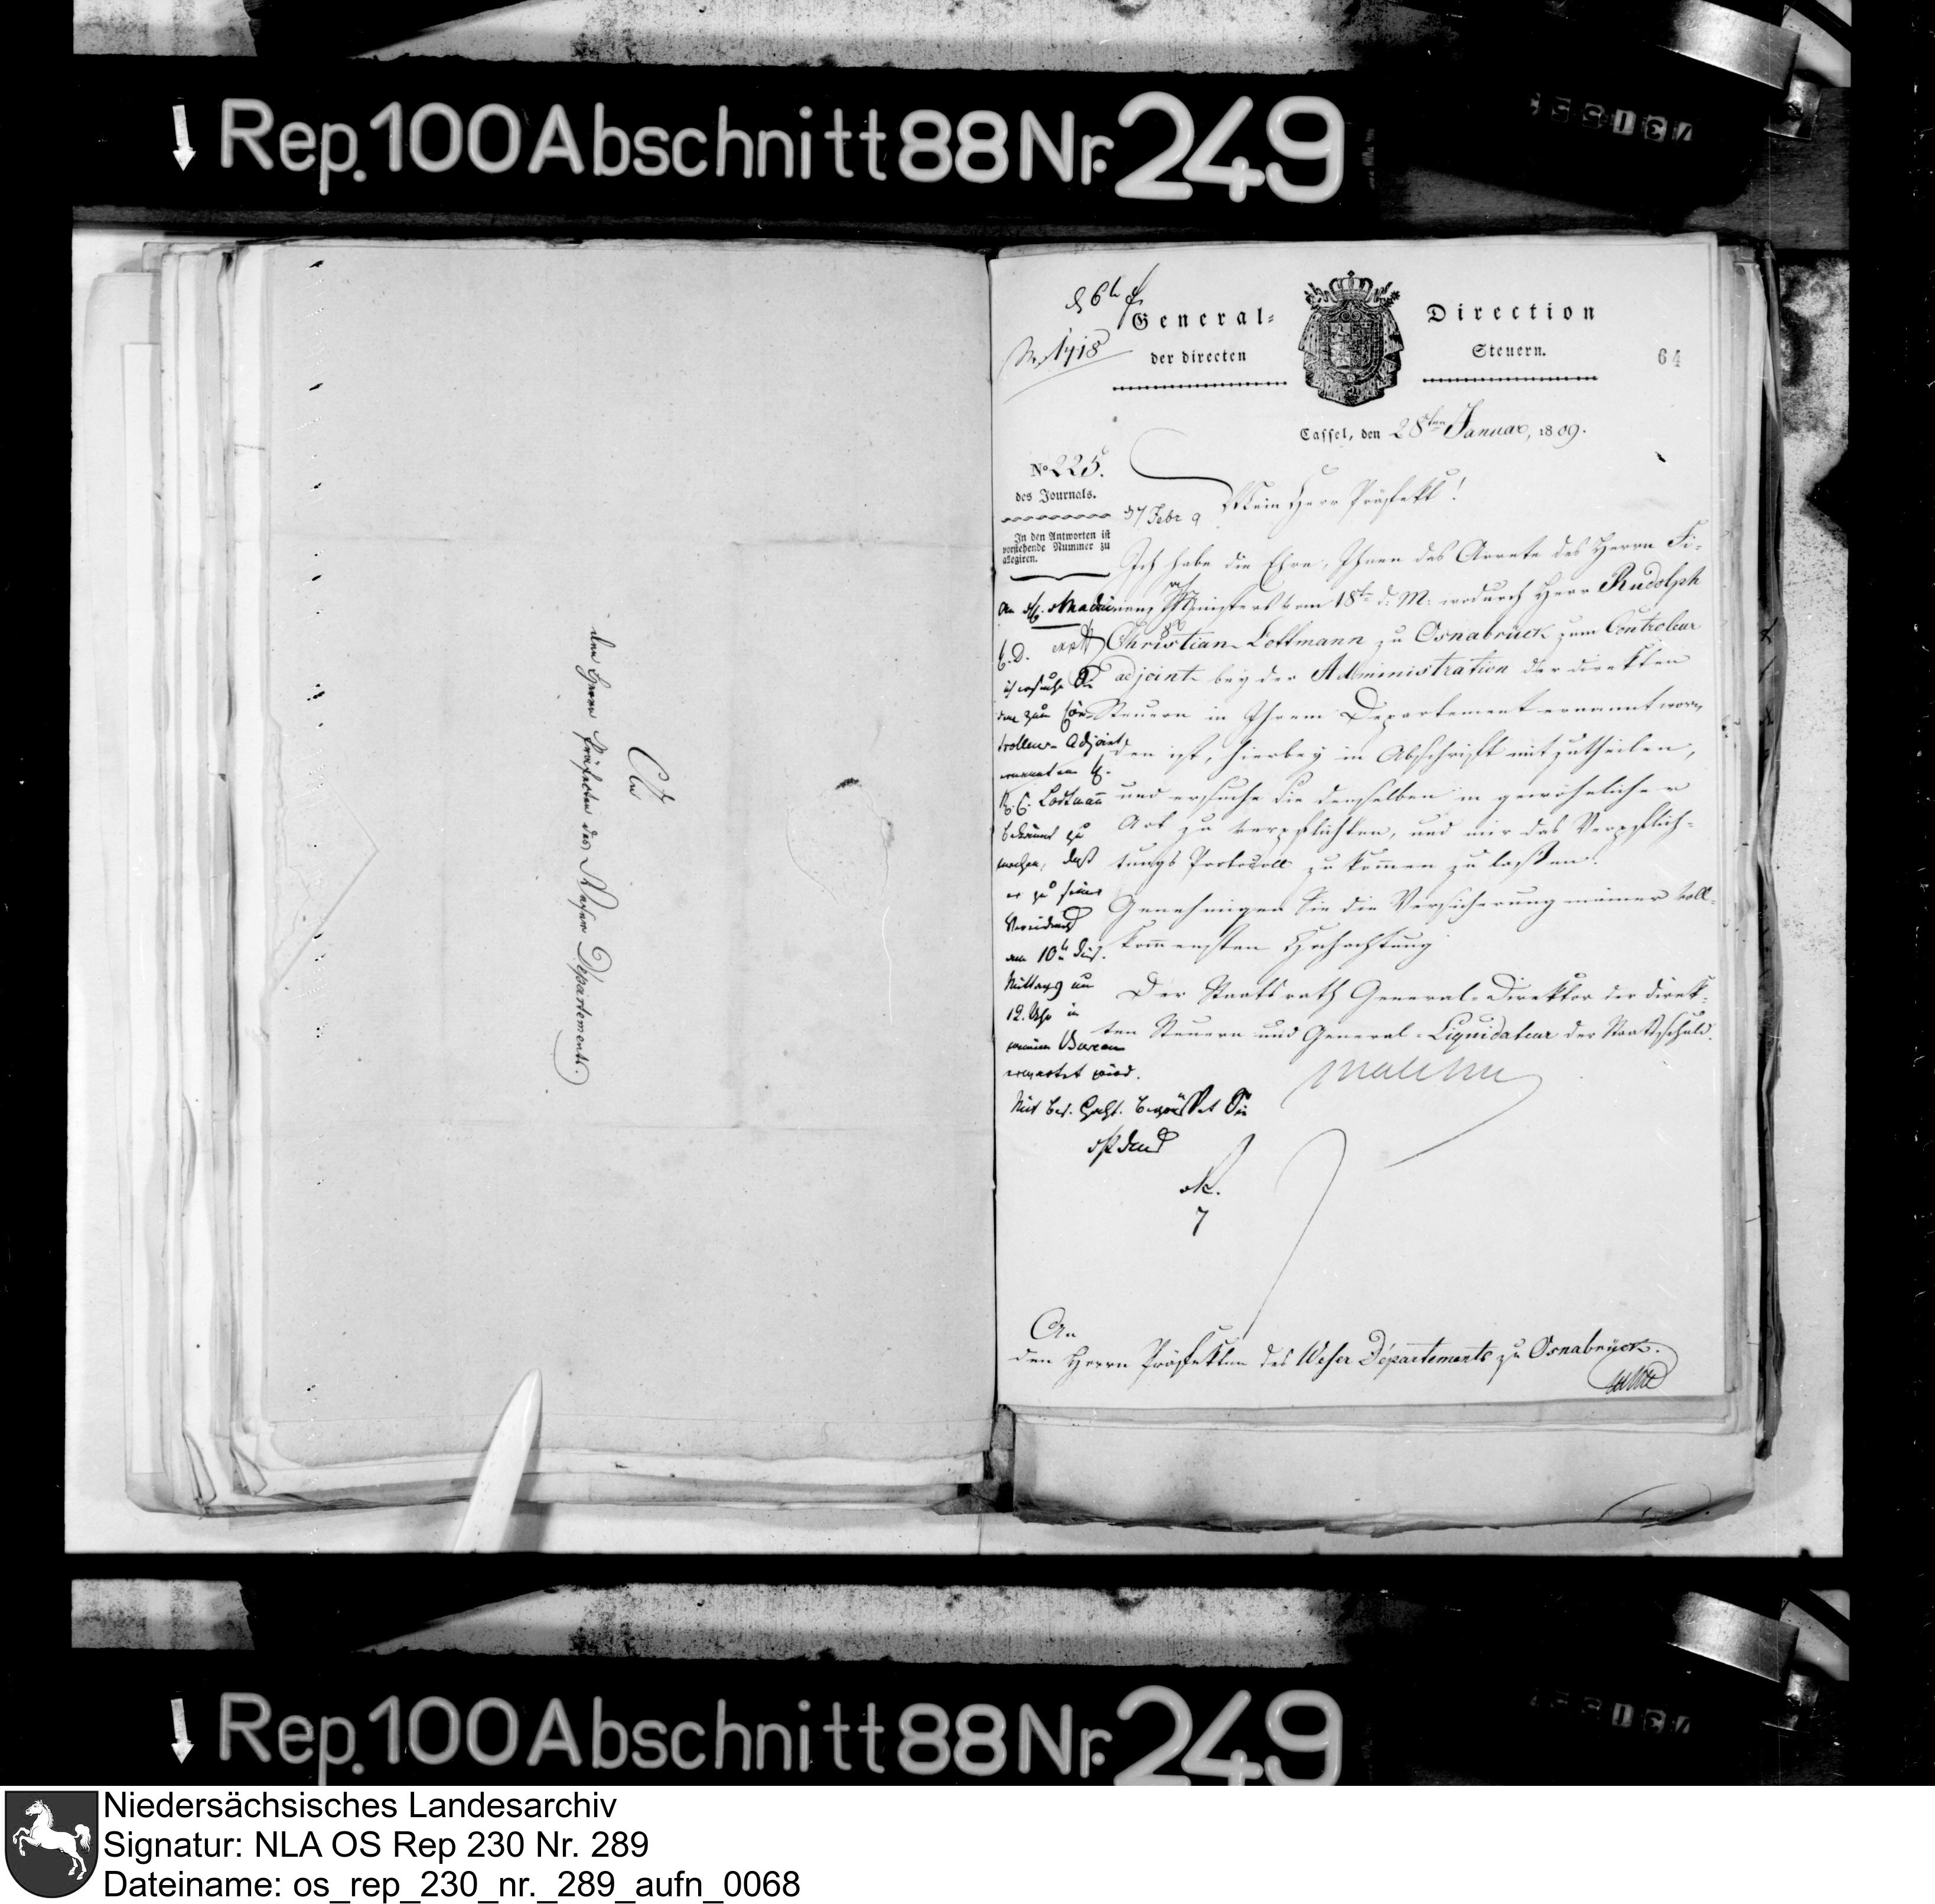 Rep. 100 Abschnitt 88 Nr. 249
An
den Herrn Präfecten des Weser Departements.
No 1718
General= Direction
der directen Steuern.
64
Cassel, den 28ten Januar, 1809.
No 225.
des Journals.
In den Antworten ist
vorstehende Nummer zu
allegiren.
Mein Herr Präfekt!
Ich habe die Ehre, Ihnen das Arrete des Herrn Fi-
nanz Ministers vom 18ten d. M. wodurch Herr Rudolph
Christian Lottmann zu Osnabrück zum Controleur
adjoint bey der Administration der direkten
Steuern in Ihrem Departement ernannt wor-
den ist, hierbey in Abschrift mitzutheilen,
und ersuche Sie denselben in gewöhnlicher
Art zu verpflichten, und mir das Verpflich-
tungs Protocoll zu kommen zu lassen.
Genehmigen Sie die Versicherung meiner voll-
kommensten Hochachtung
Der Staatsrath General-Direktor der direk-
ten Steuern und General-Liquidateur der Staatsschuld.
Malchus
ich ersuche Sie
dem zum Con-
trolleur-Adjoint
ernannten H.
R. C. Lodtmann
bekannt zu
machen, daß
er zu seiner
am 10ten dies.
Mittags um
12. Uhr in
meinem Bureau
erwartet wird.
An
den Herrn Präfekten des Weser Departements zu Osnabrück.
Rep. 100 Abschnitt 88 Nr. 249
Niedersächsisches Landesarchiv
Signatur: NLA OS Rep 230 Nr. 289
Dateiname: os_rep_230_nr._289_aufn_0068